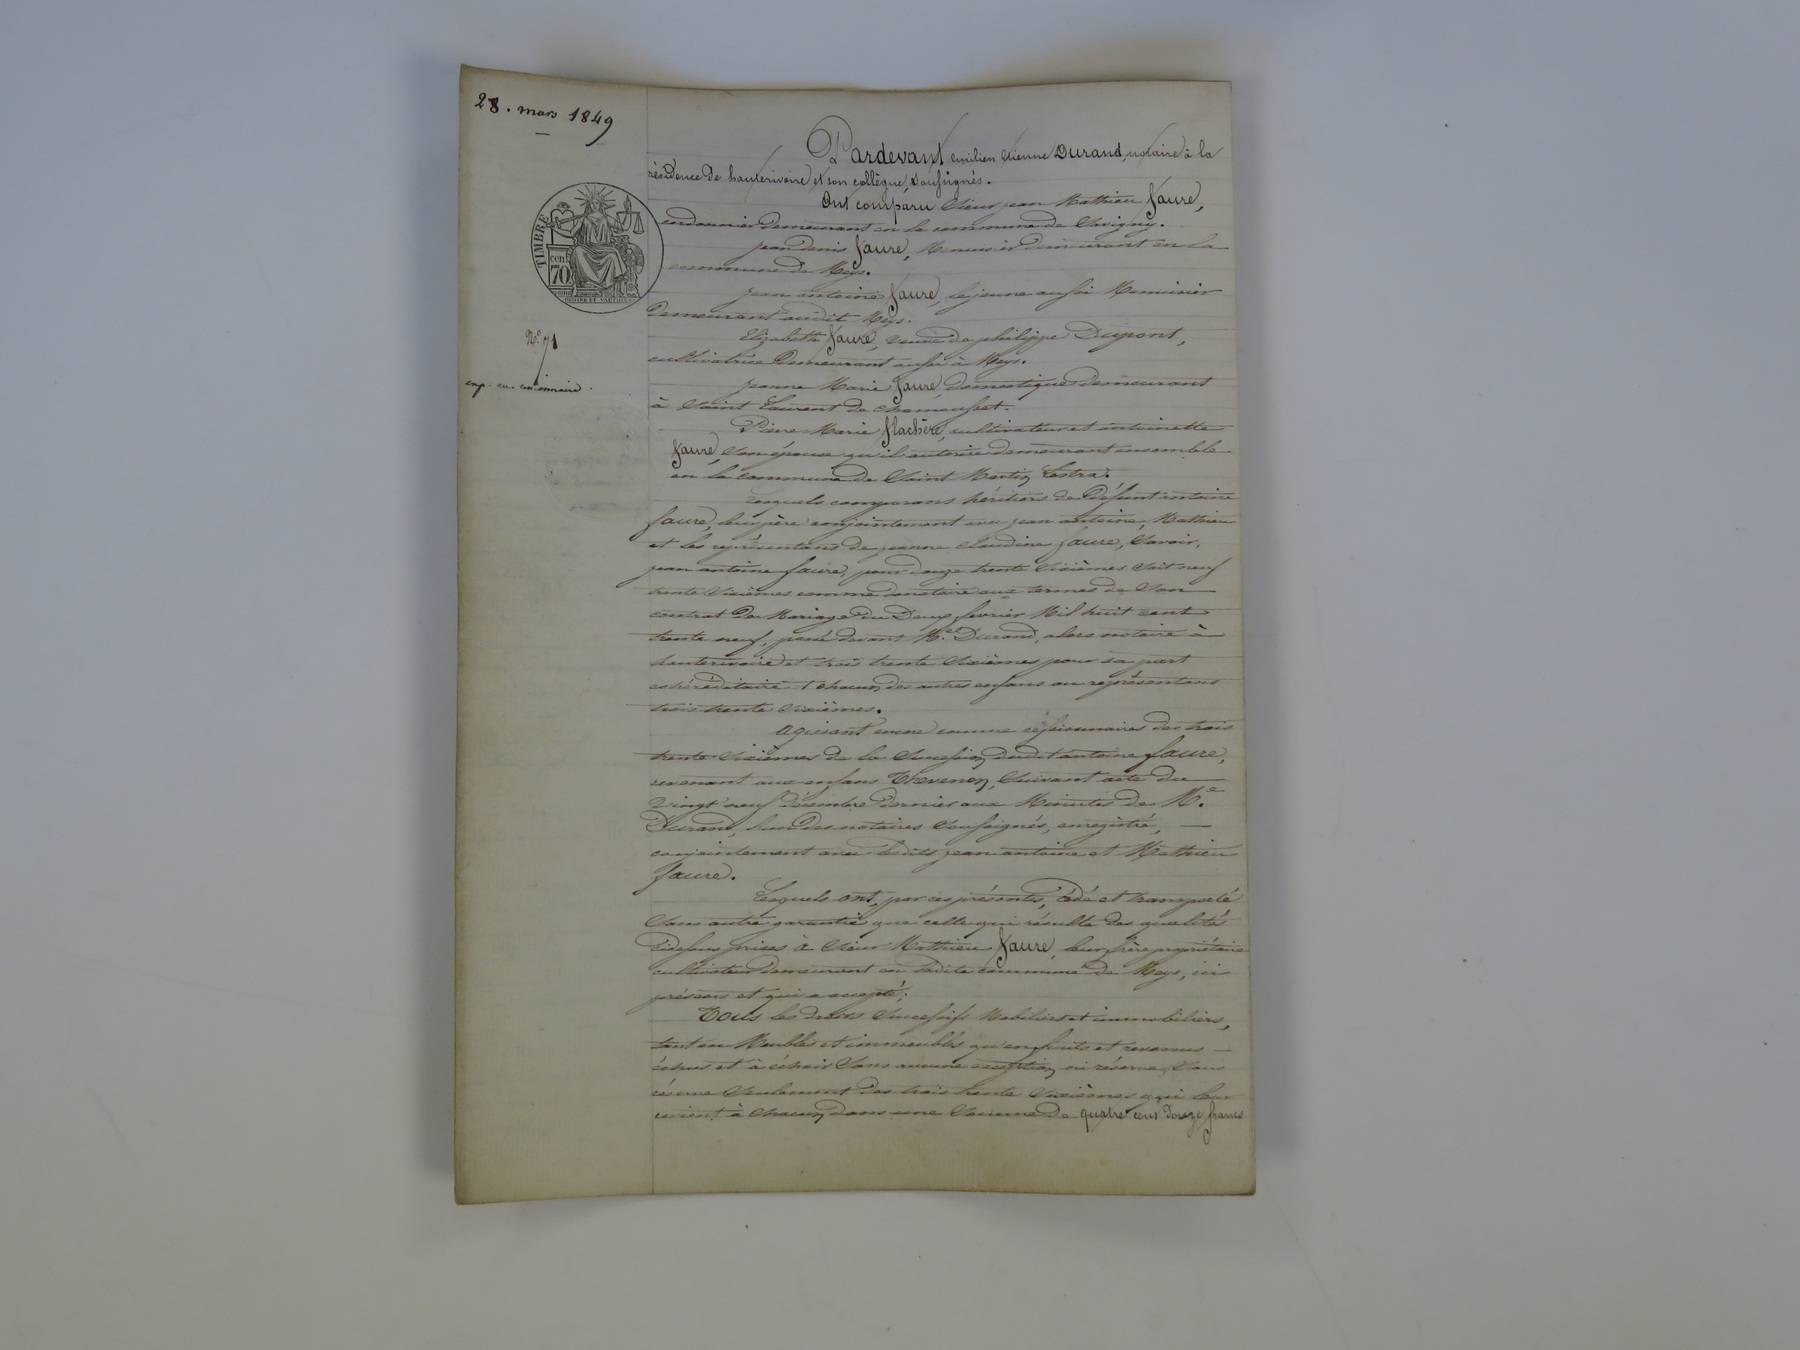 28. mars 1849
TIMBRE
cen.
70.
N.º 71
exp. au cessionnaire.
Pardevant emilien etienne Durand, notaire à la
résidence de hauterivoire et son collègue, soussignés.
Ont comparu Sieur jean Mathieu faure,
cordonnier demeurant en la commune de Savigny.
jean denis faure, Menuisier demeurant en la
commune de Meys.
jean antoine faure, le jeune aussi Menuisier
demeurant audit Meys.
Elizabeth faure, veuve de philippe Dupont,
cultivatrice demeurant aussi à Meys.
jeanne Marie faure, domestique demeurant
à Saint Laurent de chamousset.
Pierre Marie flachère, cultivateur et antoinette
faure, Son épouse qu'il autorise demeurant ensemble
en la commune de Saint Martin Lestra.
Lesquels comparans héritiers de Défunt antoine
faure, leur père conjointement avec jean antoine, Mathieu
et les représentans de jeanne claudine faure, Savoir,
jean antoine faure, pour douze trente Sixièmes Soit neuf
trente Sixièmes comme donataire aux termes de Son
contrat de Mariage du Deux fevrier Mil huit cent
trente neuf, passé devant M.e Durand, alors notaire à
hauterivoire et trois trente Sixièmes pour sa part
cohéréditaire et chacun des autres enfans ou représentans
trois trente Sixièmes.
agissant encore comme cessionnaires des trois
trente Sixièmes de la Succession dudit antoine faure,
revenant aux enfans Thevenon, Suivant acte du
vingt neuf décembre dernier aux Minutes de M.e
Durand, l'un des notaires Soussignés, enregistré, —
conjointement avec lesdits jean antoine et Mathieu
faure.
Lesquels ont, par ces présentes, cédé et transporté
Sans autre garantie que celle qui résulte des qualités
cidessus prises à Sieur Mathieu faure, leur frère propriétaire
cultivateur demeurant en ladite commune de Meys, ici
présent et qui a accepté;
Tous les droits Successifs Mobiliers et immobiliers,
tant en Meubles et immeubles qu'en fruits et revenus —
échus et à échoir Sans aucune exception ni réserve, Sans
réserve Seulement des trois trente Sixièmes qui leur
revient à chacun dans une Somme de quatre cent douze francs